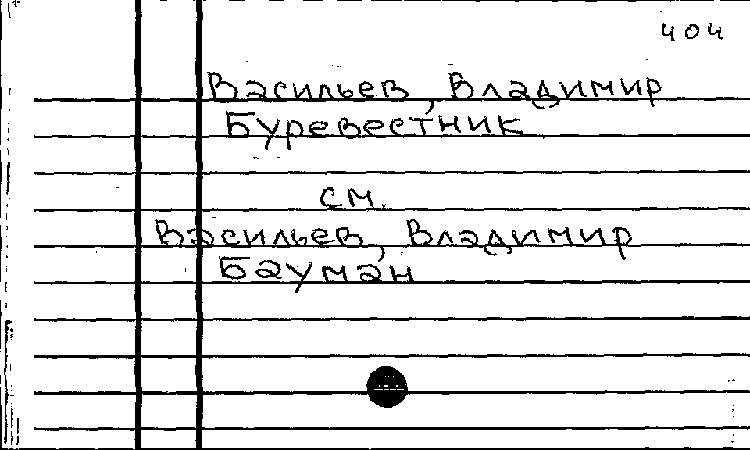 404
Васильев, Владимир
Буревестник
см.
Васильев, Владимир
Бауман